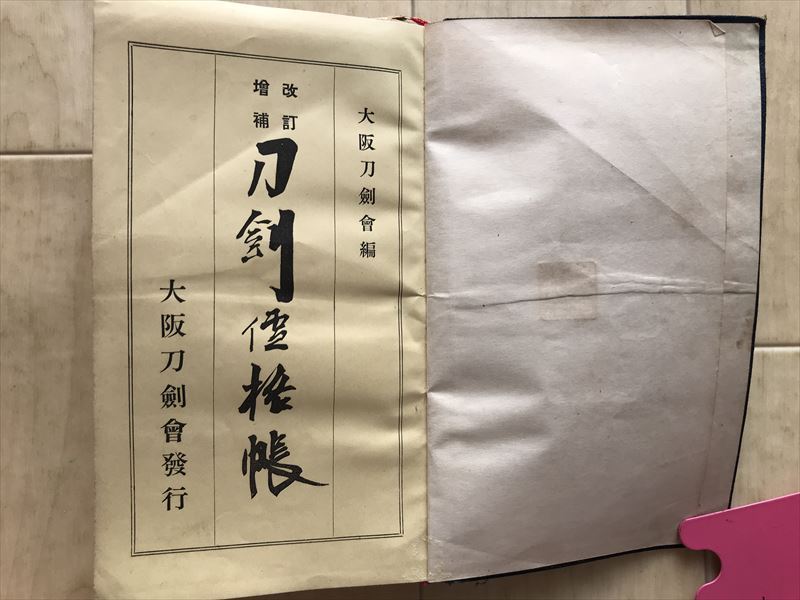 大阪刀劍會編
改訂
增補
刀劍價格帳
大阪刀劍會發行